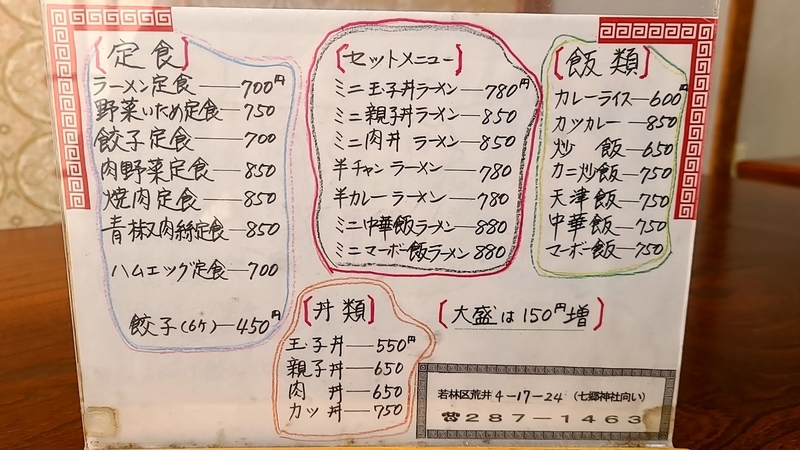 [定食]
ラーメン定食―700円
野菜いため定食―750
餃子定食―700
肉野菜定食―850
焼肉定食―850
青椒肉絲定食―850
ハムエッグ定食―700
餃子(6ケ)―450円
[セットメニュー]
ミニ玉子丼ラーメン―780円
ミニ親子丼ラーメン―850
ミニ肉丼 ラーメン―850
半チャンラーメン―780
半カレーラーメン―780
ミニ中華飯ラーメン―880
ミニマーボー飯ラーメン880
[飯類]
カレーライス―600円
カツカレー―850
炒 飯―650
カニ炒飯―750
天津飯―750
中華飯―750
マーボー飯―750
[丼類]
玉子丼―550円
親子丼―650
肉 丼―650
カツ丼―750
[大盛は150円増]
若林区荒井4-17-24 (七郷神社向い)
☎287-1463